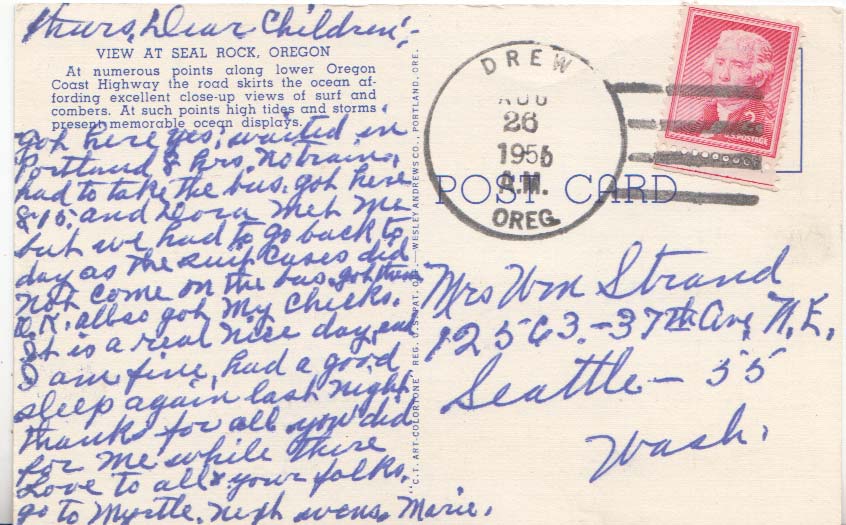 Thurs, Dear Children:-
VIEW AT SEAL ROCK, OREGON
At numerous points along lower Oregon
Coast Highway the road skirts the ocean af-
fording excellent close-up views of surf and
combers. At such points high tides and storms
present memorable ocean displays.
Got here yes. waited in
Portland 8 hrs. No train,
had to take the bus. got here
8-15. and Dora met me
but we had to go back to
day as the suit cases did
not come on the bus. got them
O.K. allso got my checks.
It is a real nice day, and
I am fine, had a good
sleep again last night
thanks for all you did
for me while there
Love to all & your folks.
go to Myrtle. next Marie.
"C.T. ART-COLORTONE" REG. U.S. PAT. OFF.—WESLEY ANDREWS CO., PORTLAND, ORE.
DREW
AUG
26
1956
A.M.
OREG.
POSTAGE
POST CARD
Mrs Wm Strand
12563.-37th Ave, N.E.
Seattle - 55
Wash.